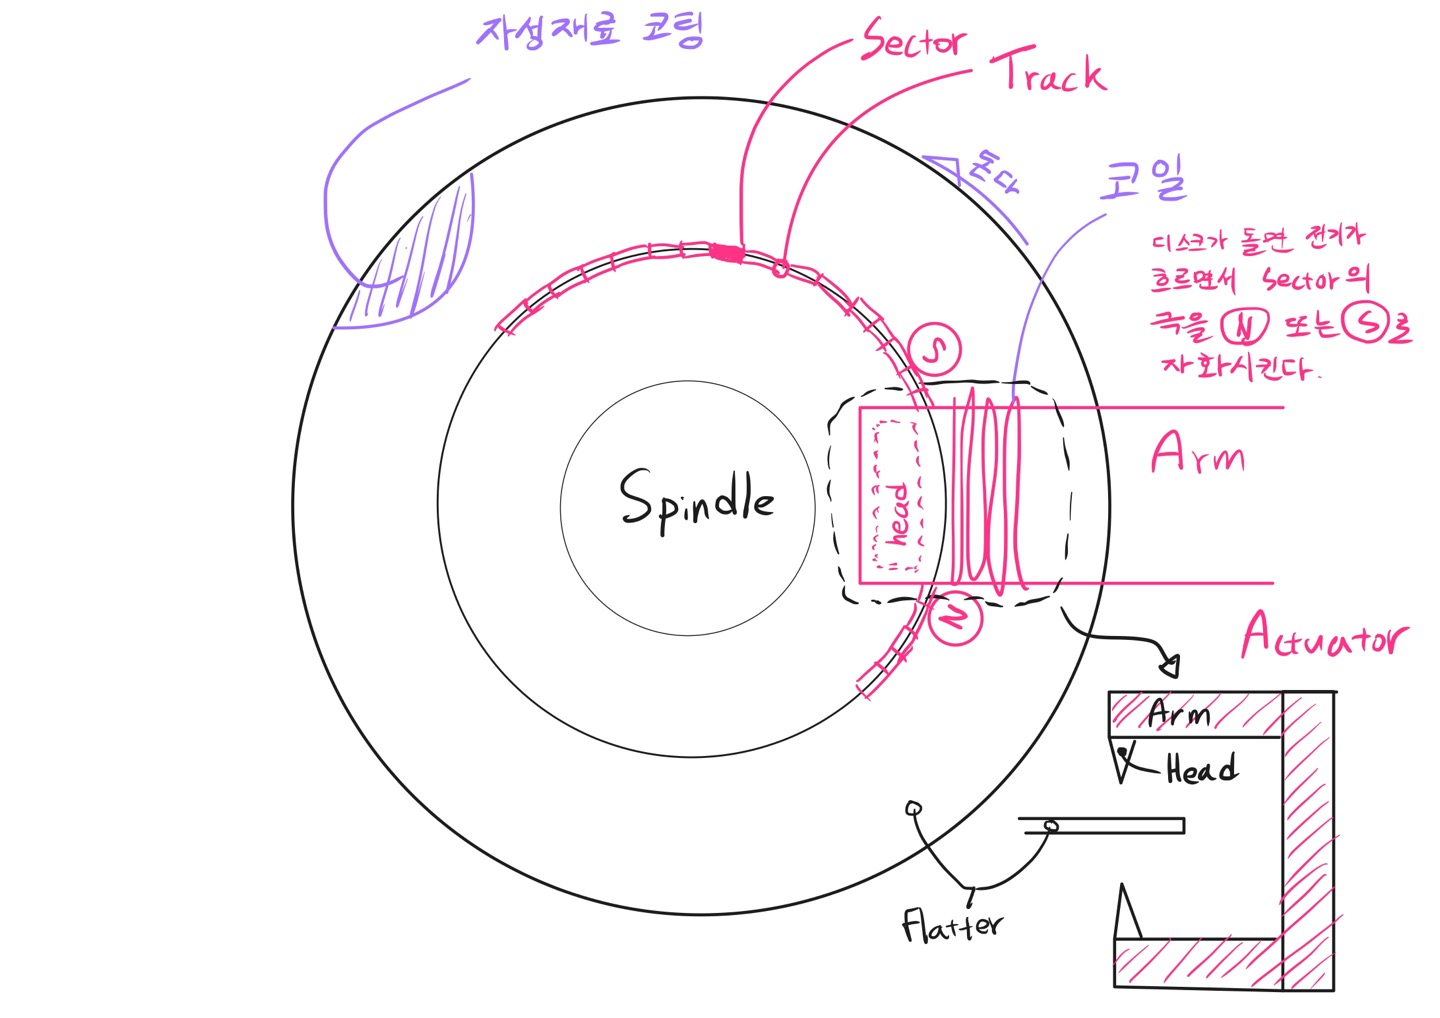 자성재료 코팅
Sector
Track
돈다
코일
디스크가 돌면 전기가
흐르면서 Sector의
극을 N 또는 S로
자화시킨다.
S
Arm
Spindle
head
N
Actuator
Arm
Head
Flatter